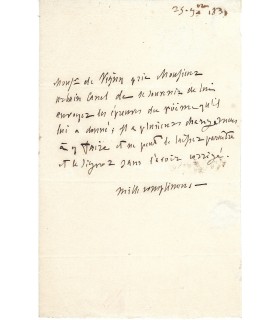 Mons. de Vigny prie Monsieur
Urbain Canel de se souvenir de lui
envoyer les épreuves du poëme qu'il
lui a donné; il a plusieurs changemens
à y faire et ne peut le laisser paraître
et le signer sans l'avoir corrigé.
mille complimens